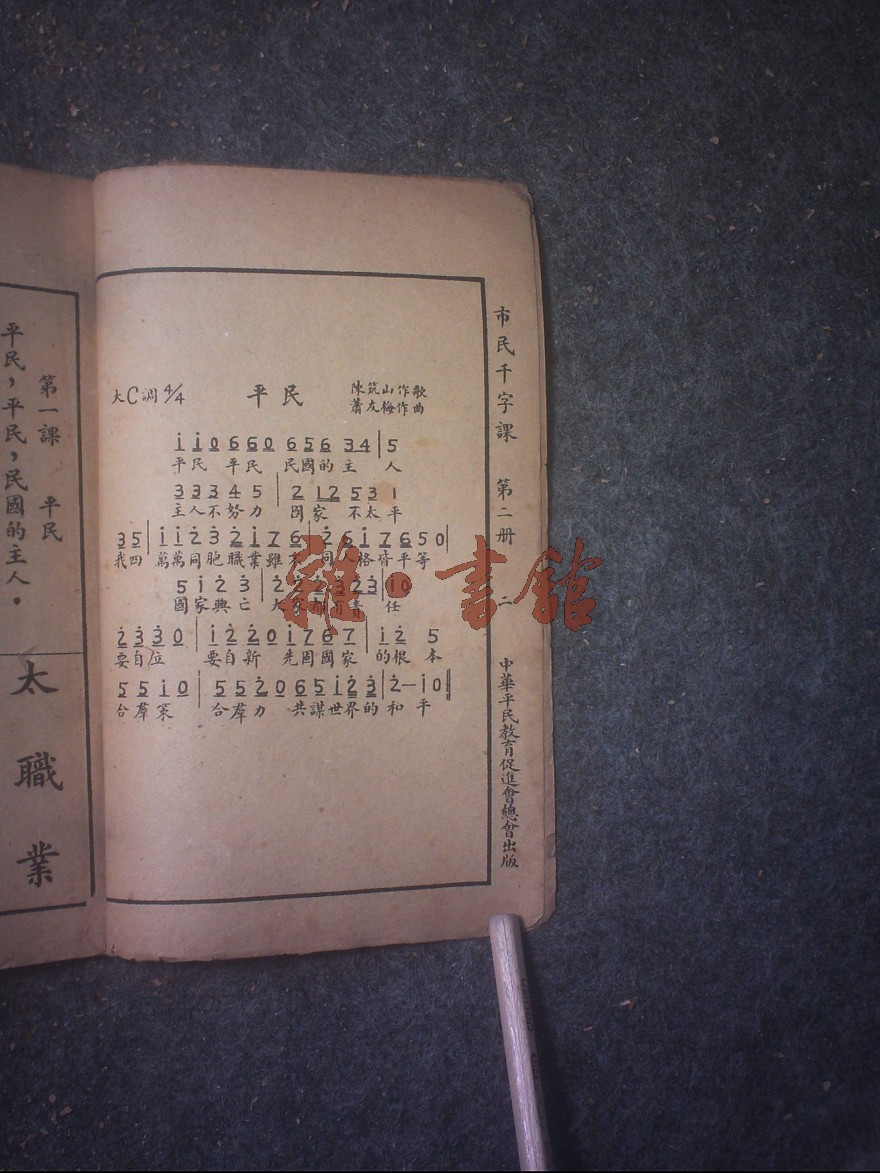 市民千字課 第二册 二 中華平民教育促進會總會出版
大C調 4/4 平民 陳筑山作歌
蕭友梅作曲
i i 0 6 6 0 6 5 6 3 4 | 5
平民 平民 民國的主 人
3 3 3 4 5 | 2 1 2 5 3 1
主人不努力 國家 不太平
3 5 | i i 2 3 2 i 7 6 | 2 6 i 7 6 5 0 |
我四 萬萬同胞職業雖不同人格皆平等
5 i 2 3 | 2 2 2 3 2 3 | i 0
國家興亡 大家都有責 任
2 3 3 0 | i 2 2 0 i 7 6 7 | i 2 5
要自立 要自新 先固國家 的根 本
5 5 i 0 | 5 5 2 0 6 5 i 2 3 | 2 — i 0 ‖
合羣策 合羣力 共謀世界的和 平
第一課 平民
平民，平民，民國的主人。
太職業
雜·書館